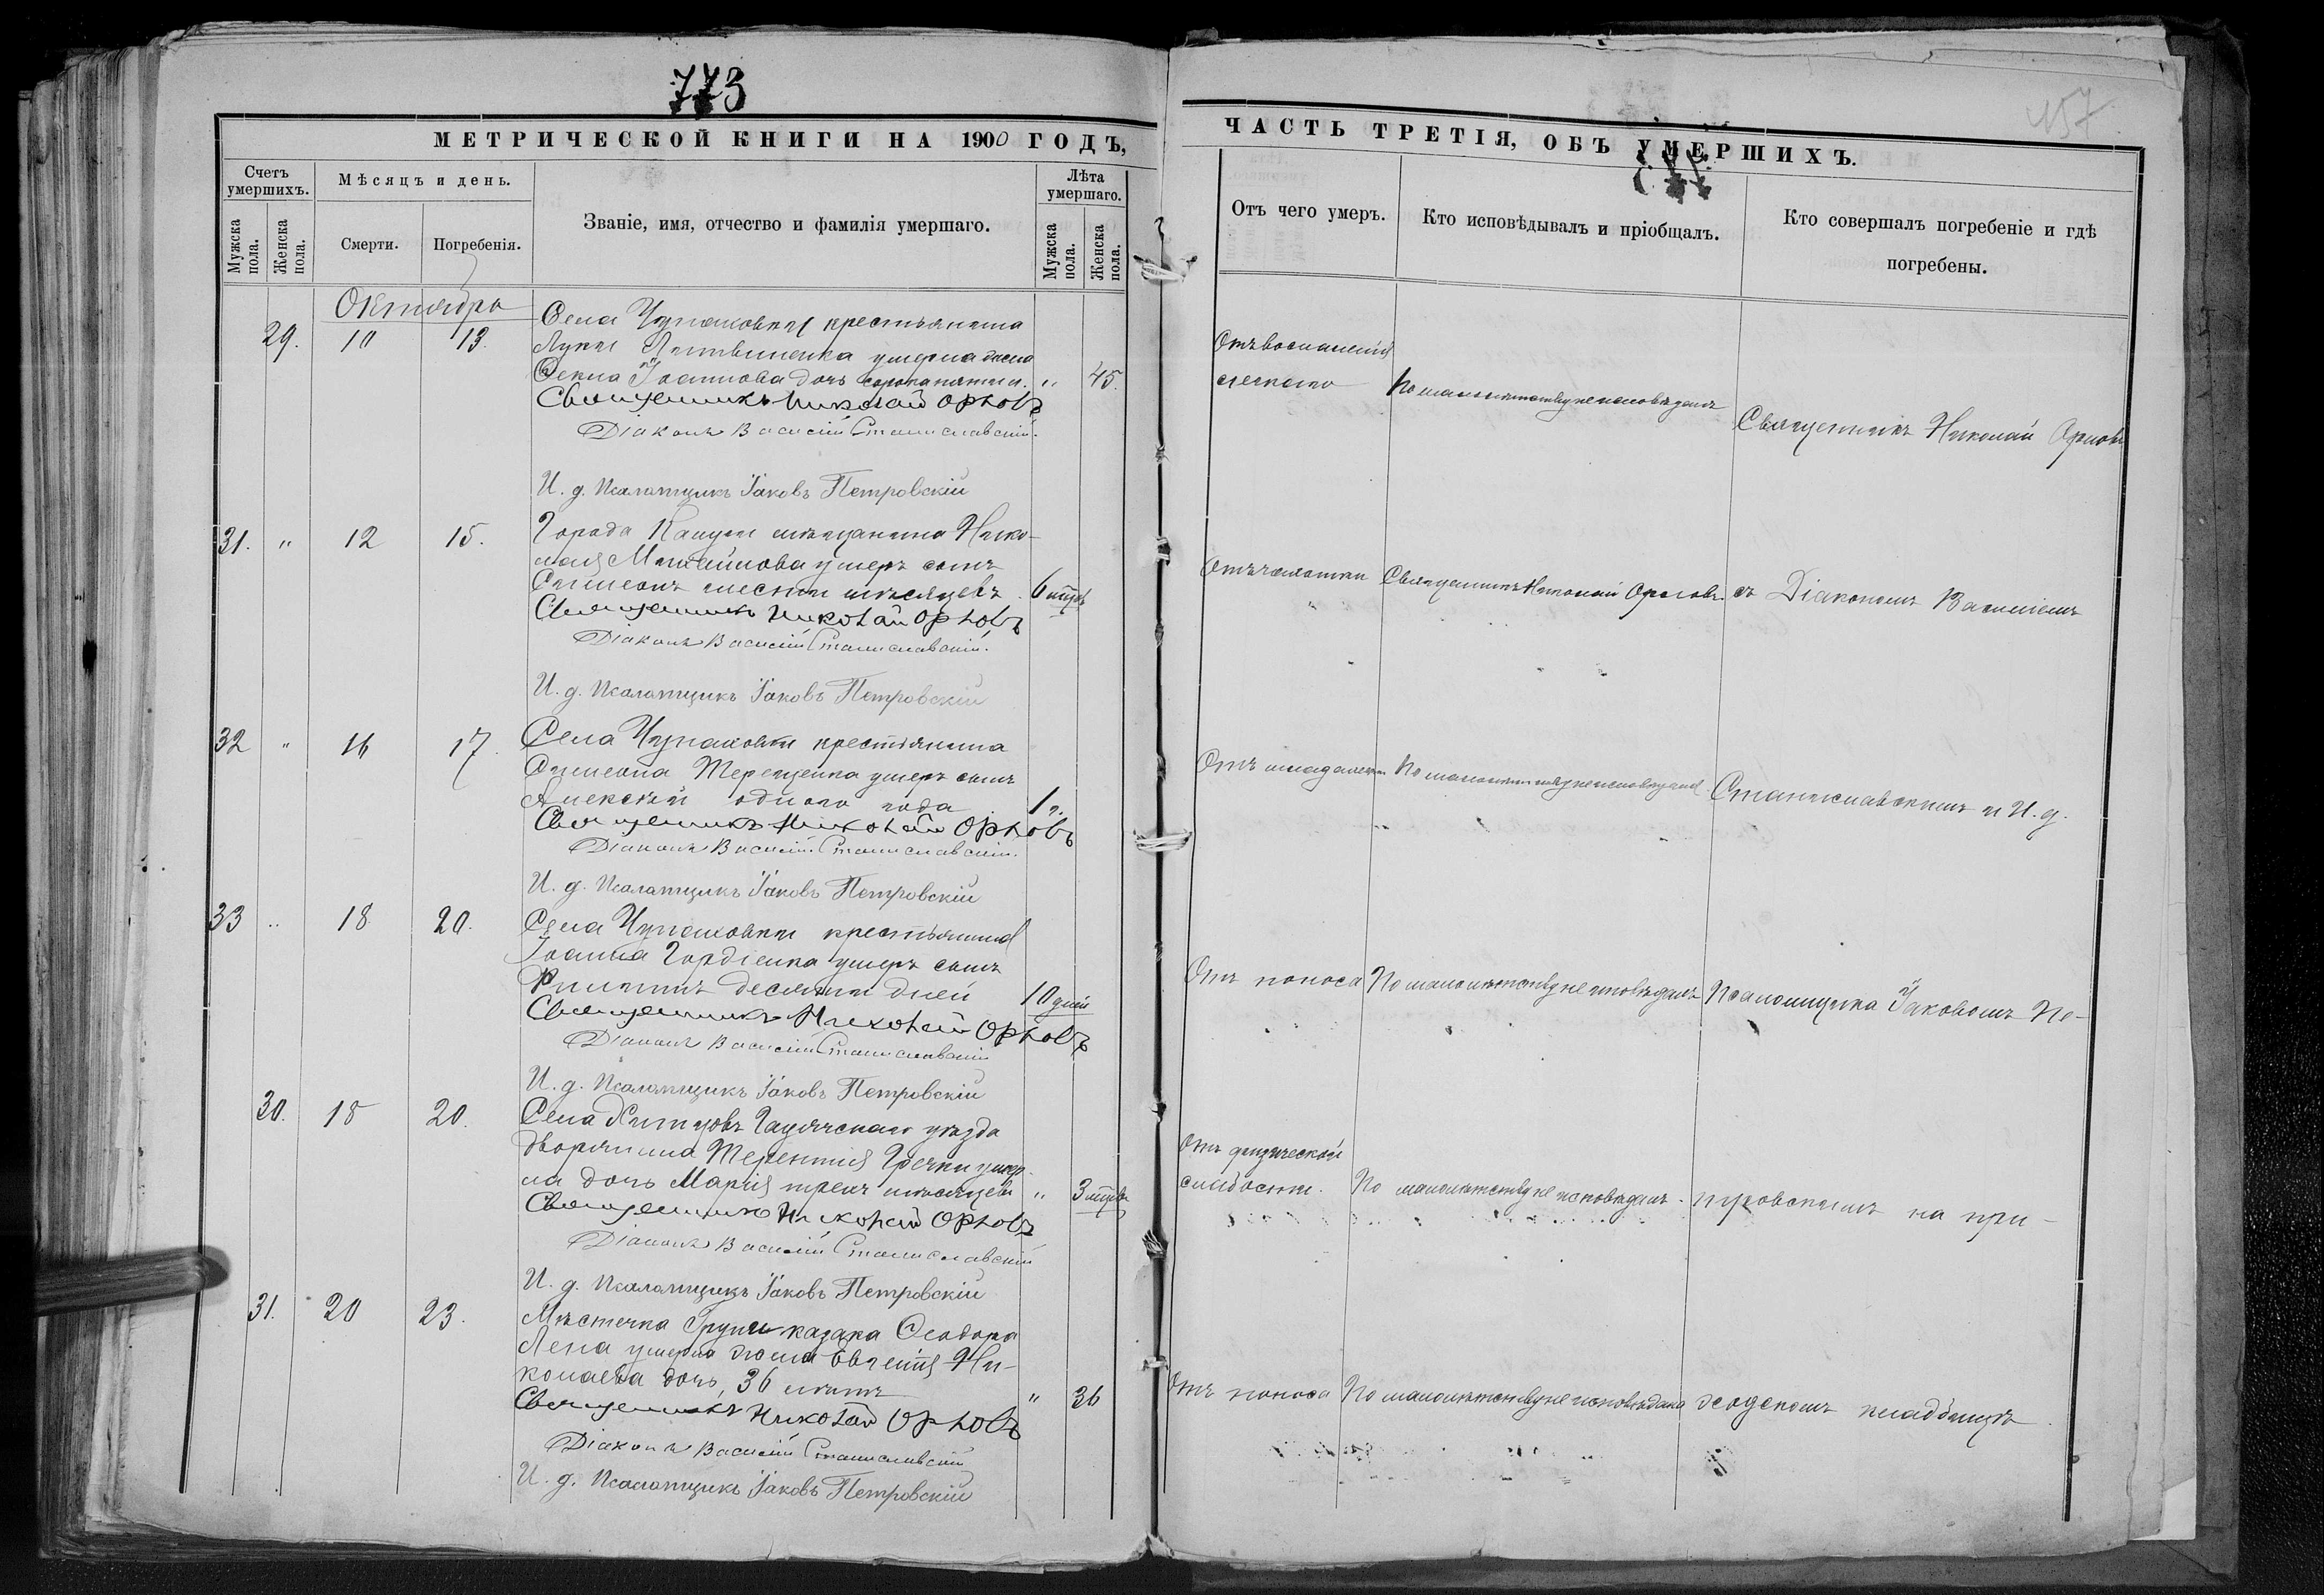 773
157
МЕТРИЧЕСКОЙ КНИГИ НА 1900 ГОДЪ,
Счетъ умершихъ.
Мѣсяцъ и день.
Званіе, имя, отчество и фамилія умершаго.
Лѣта умершаго.
Мужска пола.
Женска пола.
Смерти.
Погребенія.
Мужска пола.
Женска пола.
Октября
29. 10 13.
Села Чупаховки крестьянина
Луки Литвиненка умерла жена
Ѳекла Іоаннова дочь сорока пяти л. " 45.
Священникъ Николай Орловъ
Діаконъ Василій Станиславскій.
И. д. Псаломщикъ Іаковъ Петровскій
31. " 12 15.
Города мѣщанина Нико-
лая Михайлова умеръ сынъ
Симеонъ шести мѣсяцевъ 6 мѣс.
Священникъ Николай Орловъ
Діаконъ Василій Станиславскій.
И. д. Псаломщикъ Іаковъ Петровскій
32 " 16 17.
Села Чупаховки крестьянина
Симеона Терещенка умеръ сынъ
Алексѣй одного года 1 г.
Священникъ Николай Орловъ
Діаконъ Василій Станиславскій.
И. д. Псаломщикъ Іаковъ Петровскій
33 " 18 20.
Села Чупаховки крестьянина
Іоанна Гордіенка умеръ сынъ
Филиппъ десяти дней 10 дней
Священникъ Николай Орловъ
Діаконъ Василій Станиславскій
И. д. Псаломщикъ Іаковъ Петровскій
30. 18 20.
Села Гадячскаго уѣзда
дворянина Терентія Гречки умер-
ла дочь Марія трехъ мѣсяцевъ " 3 мѣс.
Священникъ Николай Орловъ
Діаконъ Василій Станиславскій
И. д. Псаломщикъ Іаковъ Петровскій
31. 20 23.
Мѣстечка Груни казака Ѳеодора
умерла жена Евгенія Ни-
колаева дочь, 36 лѣтъ " 36
Священникъ Николай Орловъ
Діаконъ Василій Станиславскій
И. д. Псаломщикъ Іаковъ Петровскій
ЧАСТЬ ТРЕТІЯ, ОБЪ УМЕРШИХЪ.
Отъ чего умеръ.
Кто исповѣдывалъ и пріобщалъ.
Кто совершалъ погребеніе и гдѣ погребены.
Отъ воспаленія
легкаго
По малолѣтству не исповѣданъ
Священникъ Николай Орловъ
Отъ чахотки
Священникъ Николай Орловъ.
съ Діакономъ Василіемъ
Отъ младенч.
По малолѣтству не исповѣданъ
Станиславскимъ и И. д.
Отъ поноса
По малолѣтству не исповѣданъ
Псаломщика Іаковомъ Пе-
Отъ физической
слабости.
По малолѣтству не исповѣданъ.
тровскимъ на при-
Отъ поноса
По малолѣтству не исповѣдана
ходскомъ кладбищѣ.